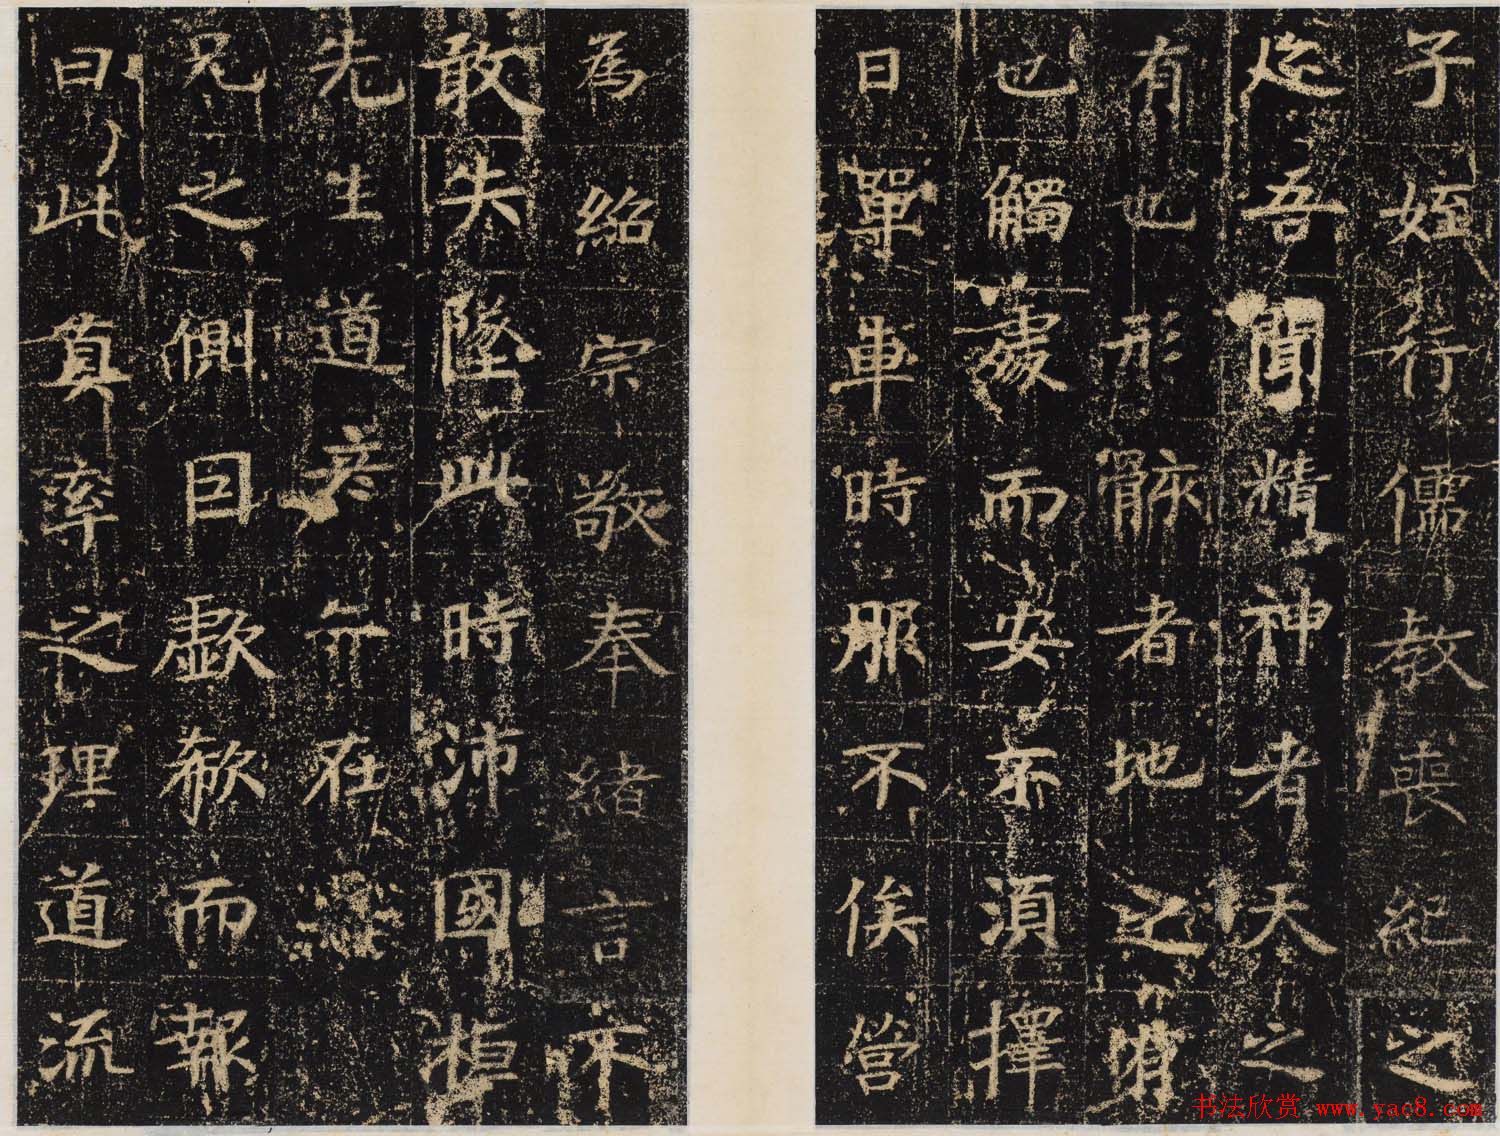 子姪行儒教喪紀之
吾聞精神者天之
有也形骸者地之有
也觸處而安不須擇
日單車時服不俟營
為紹宗敬奉緒言不
敢失墜此時沛國桓
先生道彥亦在
兄之側因歔欷而報
曰此真率之理道流
书法欣赏 www.yac8.com